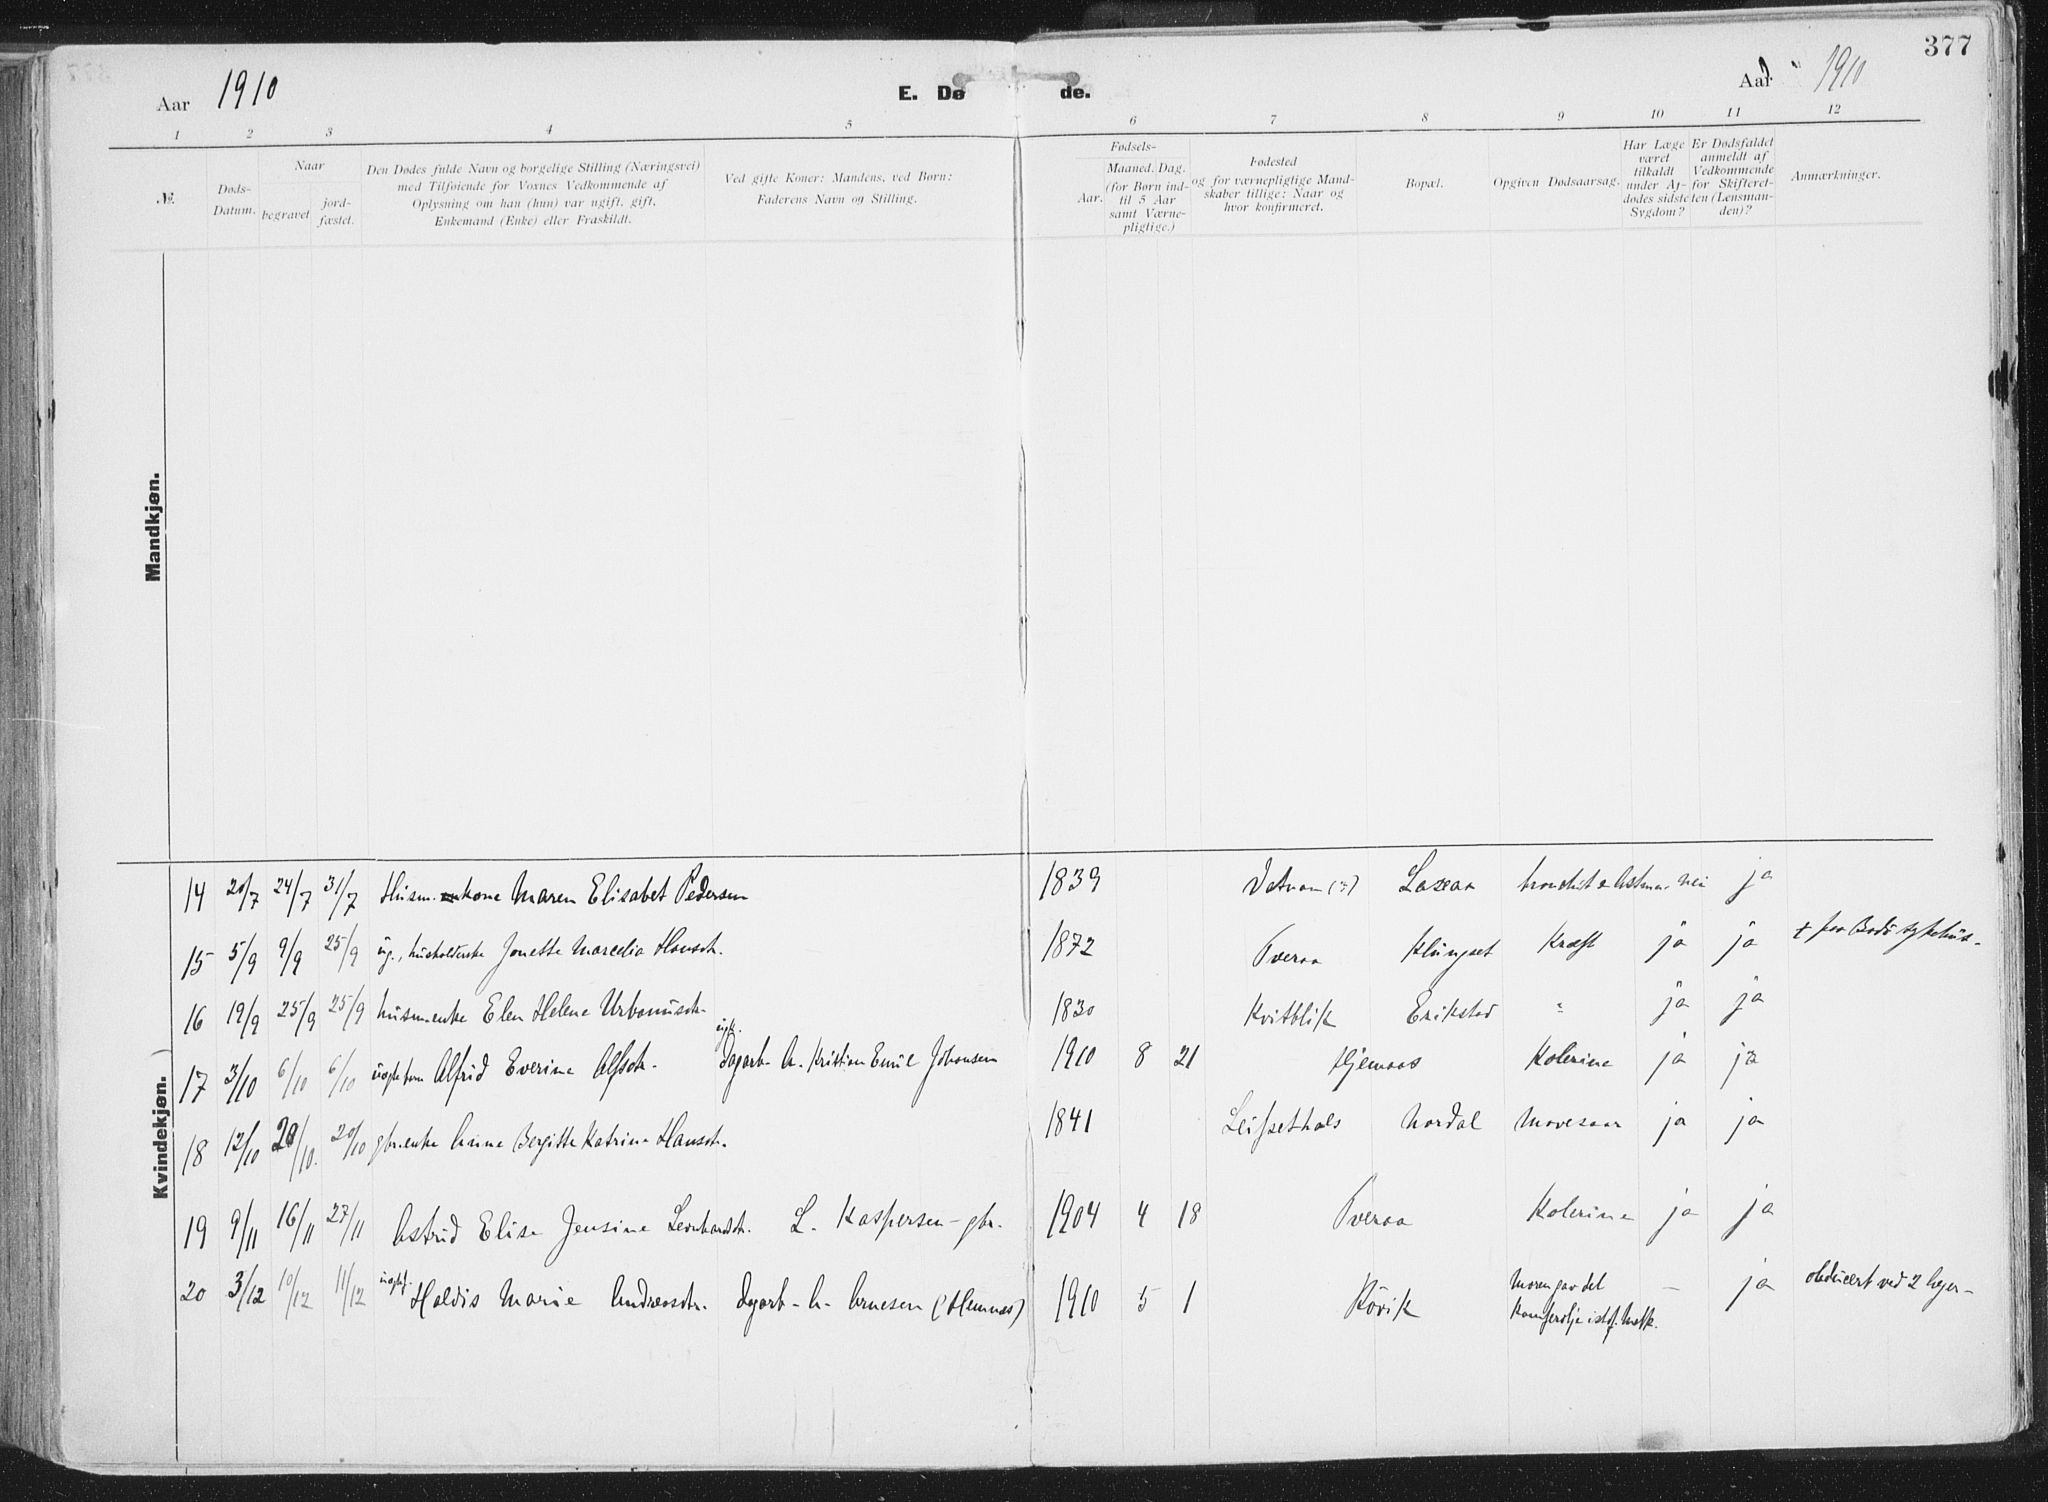 377
Aar 1910
E. Dø de.
Aar 1910
1 2 3 4 5 6 7 8 9 10 11 12
№.
Døds-
Datum.
Naar
begravet
jord-
fæstet.
Den Dødes fulde Navn og borgelige Stilling (Næringsvei)
med Tilføiende for Voxnes Vedkommende af
Oplysning om han (hun) var ugift, gift,
Enkemand (Enke) eller Fraskildt.
Ved gifte Koner: Mandens, ved Børn:
Faderens Navn og Stilling.
Fødsels-
Aar.
Maaned. Dag.
(for Børn ind-
til 5 Aar
samt Værne-
pligtige.)
Fødested
og for værnepligtige Mand-
skaber tillige: Naar og
hvor konfirmeret.
Bopæl.
Opgiven Dødsaarsag.
Har Læge
været
tilkaldt
under Af-
dødes sidste
Sygdom?
Er Dødsfaldet
anmeldt af
Vedkommende
for Skifteret-
ten (Lensman-
den)?
Anmærkninger.
Mandkjøn.
Kvindekjøn.
14 20/7 24/7 31/7 Husm.kone Maren Elisabet Pedersen 1839 Laxaa Astma nei ja
15 5/9 9/9 25/9 ug., husholderske Jonette Marcelia Hansdt. 1872 Tveraa Klungset Kræft ja ja ‡ paa Bodø sykehus-
16 19/9 25/9 25/9 husm.enke Elen Helene Urbanusdt. 1830 Kvitblik Erikstad " ja ja
ugk.
17 3/10 6/10 6/10 uægte barn Alfrid Everine Alfsdt. Dagarb. Kristian Emil Johansen 1910 8 21 Hjemaas Kolerine ja ja
18 12/10 20/10 20/10 gbr.enke Anne Bergitte Katrine Hansdt. 1841 Leifsethals Nordal Mavesaar ja ja
19 9/11 16/11 27/11 Astrid Elise Jensine Leonhardsdt. L. Kaspersen - gbr. 1904 4 18 Tveraa Kolerine ja ja
20 3/12 10/12 11/12 uægtef. Haldis Marie Andreasdtr. dgarb- A. Arnesen (Hemnes) 1910 5 1 Røvik Moren gav det - ja obducert ved 2 læger-
Kamferolje istdf. Melk.